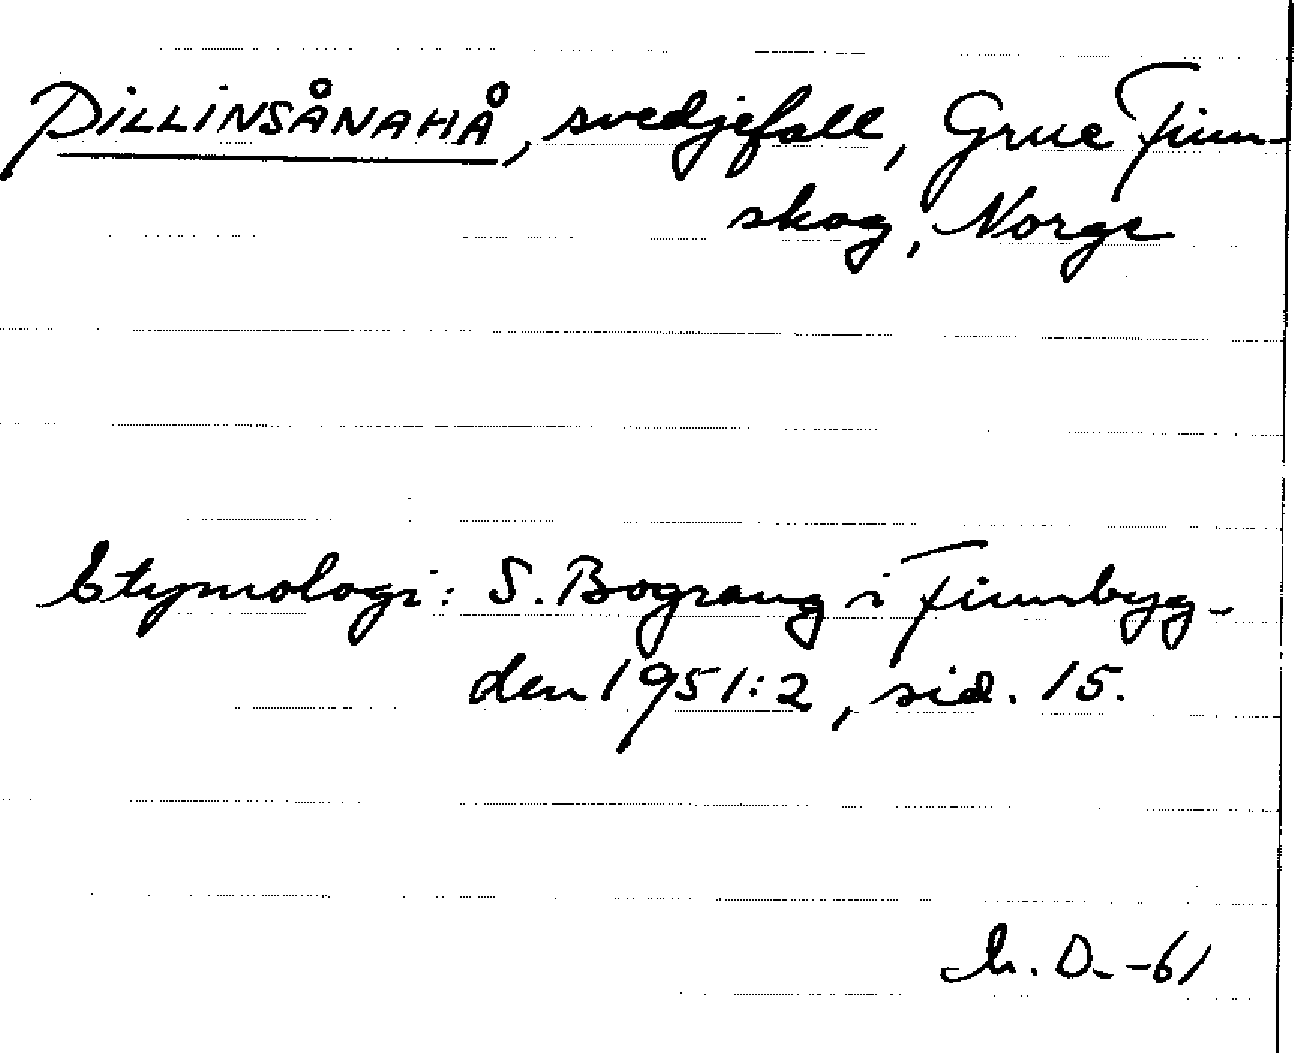 PILLINSÅNAHÅ, svedjefall, Grue Finn-
skog, Norge
Etymologi: S. Bograng i Finnbyg-
den 1951:2, sid. 15.
D. -61